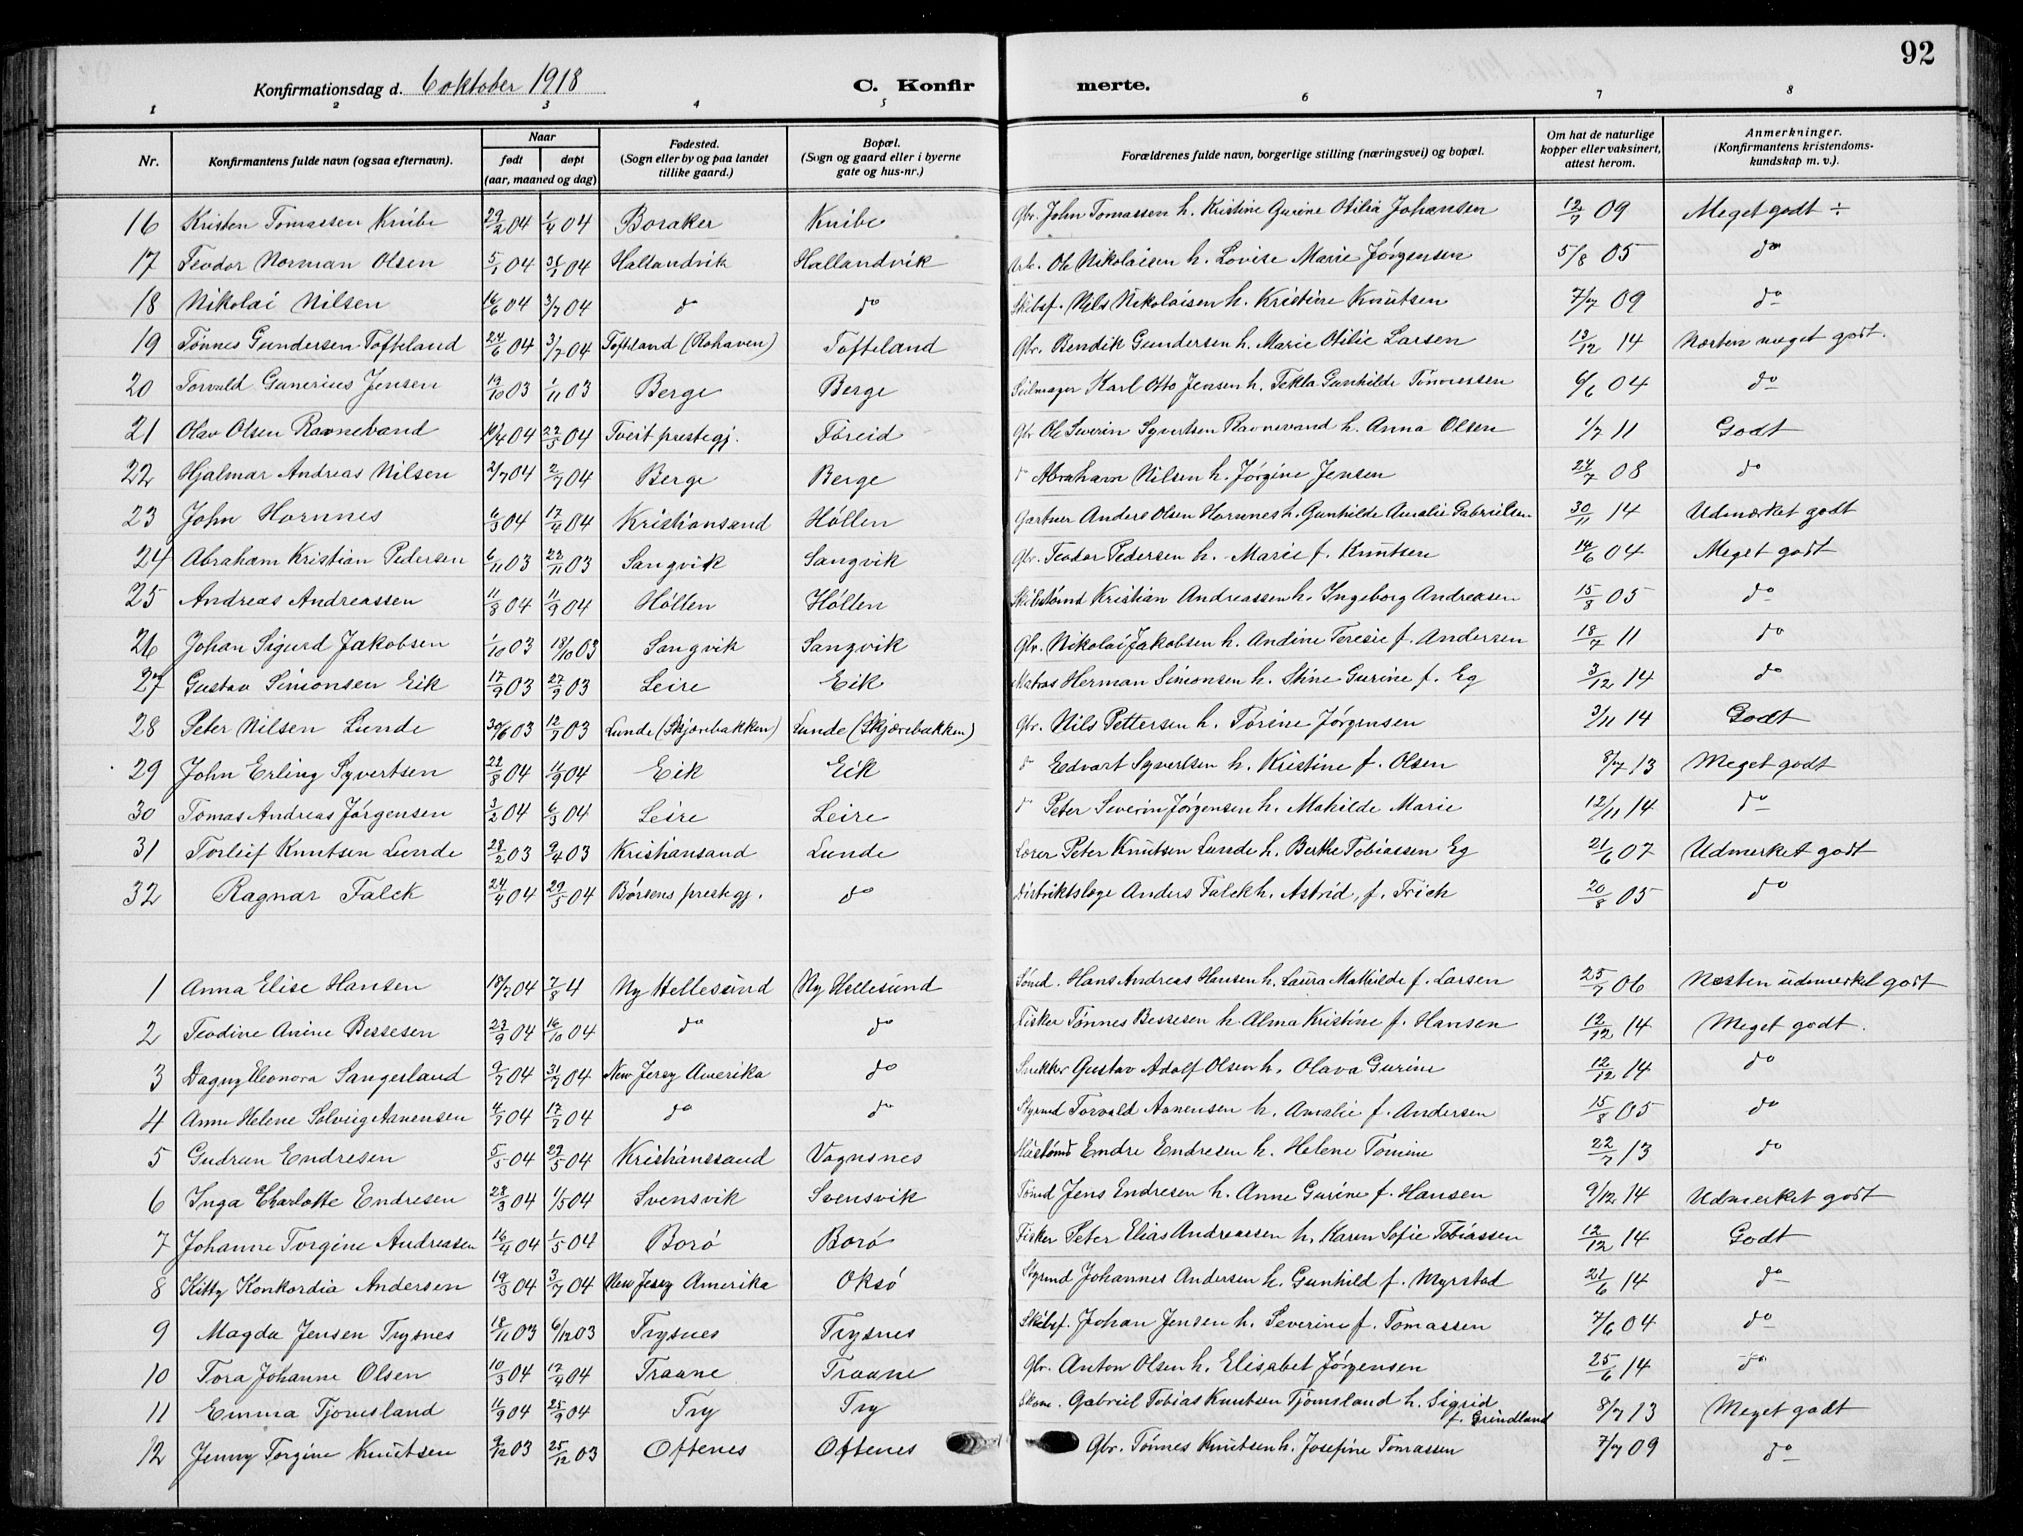 92
Konfirmationsdag d. 6 oktober 1918 C. Konfirmerte.
1 2 3 4 5 6 7 8
Nr. Konfirmantens fulde navn (ogsaa efternavn). Naar født døpt (aar, maaned og dag) Fødested. (Sogn eller by og paa landet tillike gaard.) Bopæl. (Sogn og gaard eller i byerne gate og hus-nr.) Forældrenes fulde navn, borgerlige stilling (næringsvei) og bopæl. Om hat de naturlige kopper eller vaksinert, attest herom. Anmerkninger. (Konfirmantens kristendomskundskap m. v.).
16 Kristen Tomassen Knibe 29/2 04 1/4 04 Boraker Knibe Gbr. John Tomassen h. Kristine Gurine Otilia Johansen 12/7 09 Meget godt ÷
17 Teodor Norman Olsen 5/1 04 04 Hallandvik Hallandvik Arb. Ole Nikolaisen h. Lovise Marie Jørgensen 5/8 05 do
18 Nikolai Nilsen 16/6 04 3/7 04 do do Skibsf. Nils Nikolaisen h. Kristine Knutsen 7/7 09 do
19 Tønnes Gundersen Tofteland 24/6 04 3/7 04 Tofteland (Rohaven) Tofteland Gbr. Bendik Gundersen h. Marie Otilie Larsen 13/12 14 Næsten meget godt.
20 Torvald Gunerius Jensen 19/10 03 1/11 03 Berge Berge Seilmager Karl Otto Jensen h. Tekla Gunhilde Tønnessen 6/6 04 do
21 Olav Olsen Ravnevand 19/4 04 22/5 04 Tveit prestegj. Foreid Gbr Ole Severin Syvertsen Ravnevand h. Anna Olsen 1/7 11 Godt
22 Hjalmar Andreas Nilsen 2/7 04 04 Berge Berge do Abraham Nilsen h. Jørgine Jensen 24/7 08 do
23 John Hornnes 6/3 04 17/4 04 Kristiansand Høllen Gartner Anders Olsen Hornnes h. Gunhilde Amalie Gabrielsen 30/11 14 Udmerket godt
24 Abraham Kristian Pedersen 6/11 03 22/11 03 Sangvik Sangvik Gbr. Teodor Pedersen h. Marie f. Knutsen 14/6 04 Meget godt
25 Andreas Andreassen 11/8 04 11/9 04 Høllen Høllen Skibstømd Kristian Andreassen h. Ingeborg Andreasen 15/8 05 do
26 Johan Sigurd Jakobsen 1/10 03 18/10 03 Sangvik Sangvik Gbr. Nikolai Jakobsen h. Andine Teresie f. Andersen 18/7 11 do
27 Gustav Simonsen Eik 17/9 03 27/9 03 Leire Eik Matros Herman Simonsen h. Stine Gurine f. Eg 3/12 14 do
28 Peter Nilsen Lunde 30/6 03 12/7 03 Lunde (Skjærebakken) Lunde (Skjærebakken) Gbr. Nils Pettersen h. Torine Jørgensen 3/11 14 Godt
29 John Erling Syvertsen 22/8 04 11/9 04 Eik Eik do Edvart Syvertsen h. Kristine f. Olsen 8/7 13 Meget godt
30 Tomas Andreas Jørgensen 3/2 04 6/3 04 Leire Leire do Peter Severin Jørgensen h. Mathilde Marie 12/11 14 do
31 Torleif Knutsen Lunde 28/2 03 9/4 03 Kristiansand Lunde Lærer Peter Knutsen Lunde h. Berthe Tobiassen Eg 21/6 07 Udmerket godt
32 Ragnar Falck 24/4 04 29/5 04 Børsens prestegj. do Distriktslæge Anders Falck h. Astrid, f. Frich 20/8 05 do
1 Anna Elise Hansen 18/7 04 7/8 4 Ny Hellesund Ny Hellesund Tømd. Hans Andreas Hansen h. Laura Mathilde f. Larsen 25/7 06 Næsten udmerket godt
2 Teodine Anine Bessesen 23/9 04 16/10 04 do do Fisker Tønnes Bessesen h. Alma Kristine f. Hansen 12/12 14 Meget godt.
3 Dagny Eleonora Sangesland 9/7 04 31/7 04 New Jersy Amerika do Snekker Gustav Adolf Olsen h. Olava Gurine 12/12 14 do
4 Anne Helene Solveig Aanensen 4/7 04 17/7 04 do do Styrmd Torvald Aanensen h. Amalie f. Andersen 15/8 05 do
5 Gudrun Endresen 5/5 04 29/5 04 Kristianssand Vognsnes Endre Endresen h. Helene Tomine 22/7 13 do
6 Inga Charlotte Endresen 28/3 04 1/5 04 Svensvik Svensvik Tømd Jens Endresen h. Anne Gurine f. Hansen 9/12 14 Udmerket godt
7 Johanne Torgine Andreasen 16/4 04 1/5 04 Borø Borø Fisker Peter Elias Andreassen h. Karen Sofie Tobiassen 12/12 14 Godt
8 Kitty Konkordia Andersen 19/3 04 3/7 04 New Jersy Amerika Oksø Styrmd Johannes Andersen h. Gunhild f. Myrstad 21/6 14 do
9 Magda Jensen Trysnes 18/11 03 6/12 03 Trysnes Trysnes Skibsf. Johan Jensen h. Severine f. Tomassen 7/6 04 do
10 Tora Johanne Olsen 10/3 04 17/4 04 Traane Traane Gbr. Anton Olsen h. Elisabet Jørgensen 25/6 14 do
11 Emma Tjomsland 11/9 04 25/9 04 Try Try Skom. Gabriel Tobias Knutsen Tjømsland h. Sigrid f. Grindland 8/7 13 Meget godt
12 Jenny Torgine Knutsen 9/12 03 25/12 03 Oftenes Oftenes Gbr. Tønnes Knutsen h. Josefine Tomassen 7/7 09 do